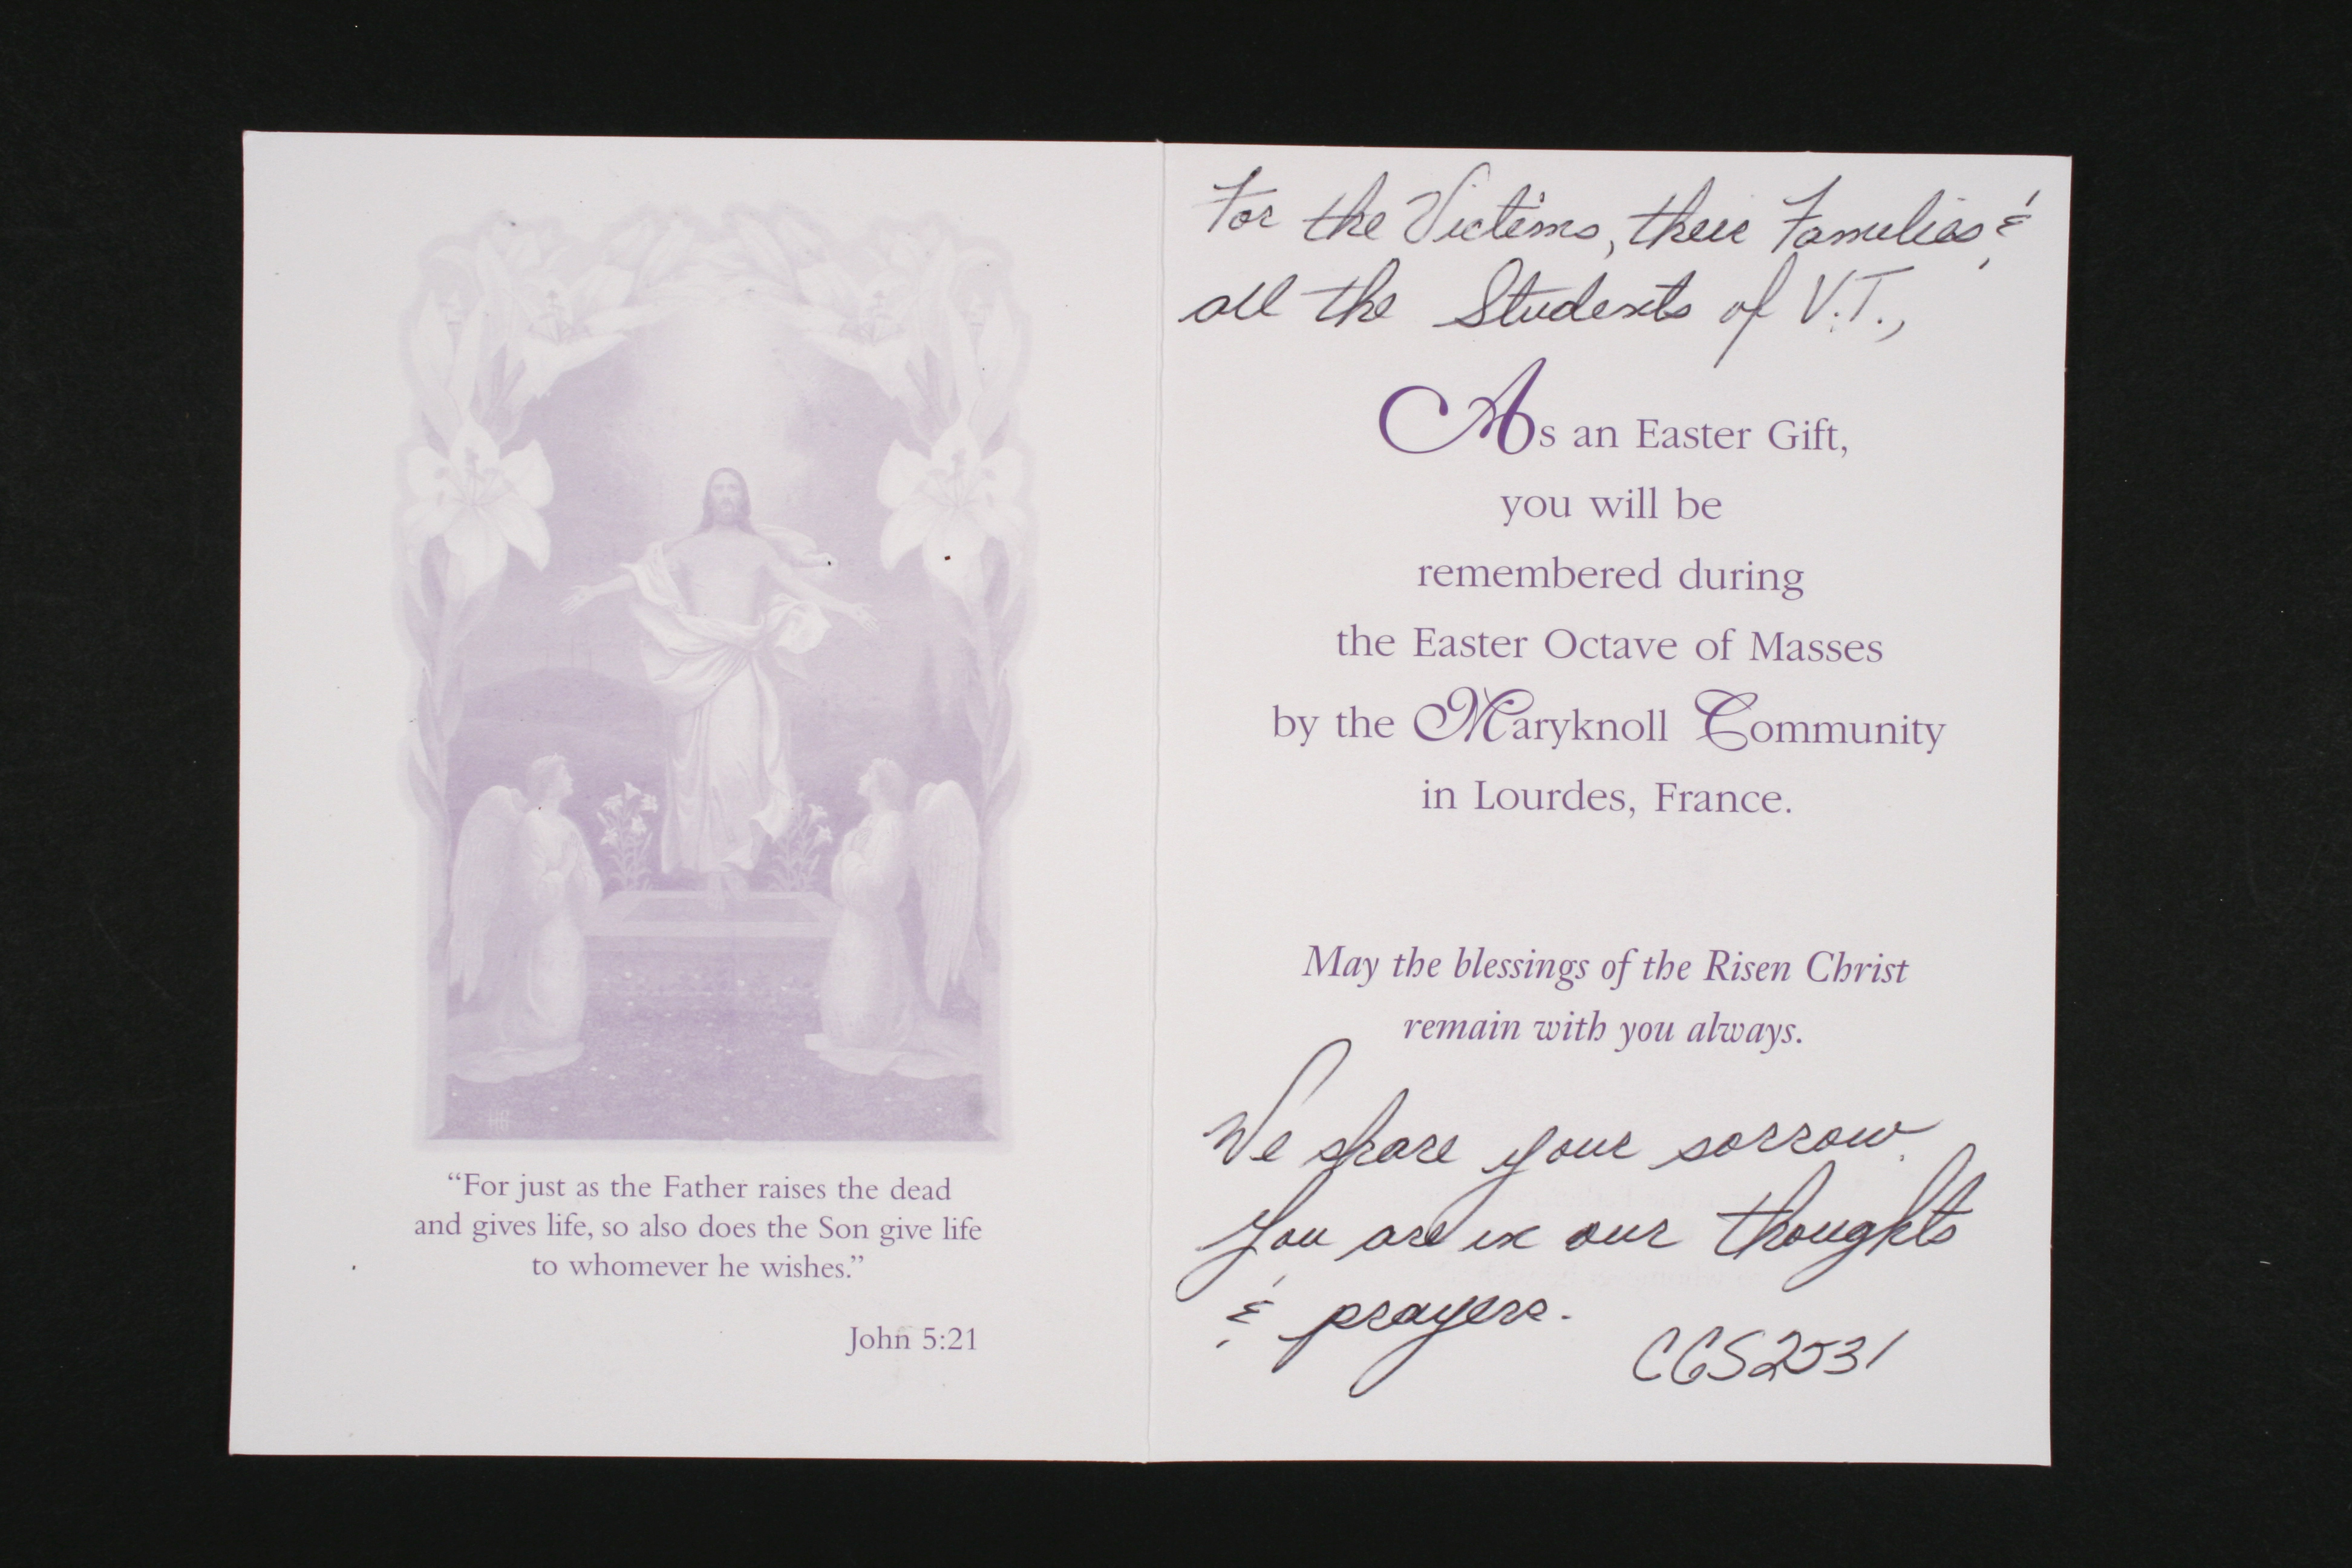 "For just as the Father raises the dead
and gives life, so also does the Son give life
to whomever he wishes."
John 5:21
For the Victims, their Families, &
all the Students of V.T.,
As an Easter Gift,
you will be
remembered during
the Easter Octave of Masses
by the Maryknoll Community
in Lourdes, France.
May the blessings of the Risen Christ
remain with you always.
We share your sorrow.
You are in our thoughts
& prayers.
CGS2531